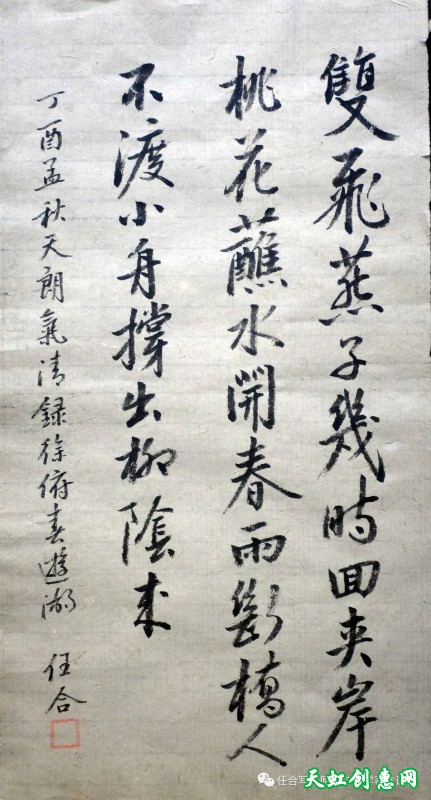 雙飛燕子幾時回夾岸
桃花蘸水開春雨斷橋人
不渡小舟撐出柳陰來
丁酉孟秋天朗氣清録徐俯春遊湖
任合
天虹创惠网